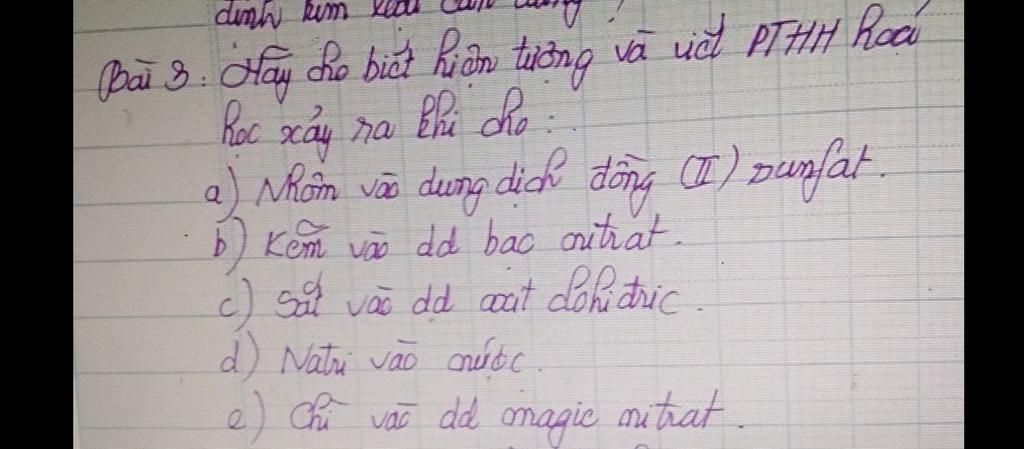 định kim loại
Bài 3: Hãy cho biết hiện tượng và viết PTHH hoá
học xảy ra khi cho:
a) Nhôm vào dung dịch đồng (II) sunfat.
b) Kẽm vào dd bạc nitrat.
c) Sắt vào dd axit clohiđric.
d) Natri vào nước.
e) Chì vào dd magie nitrat.